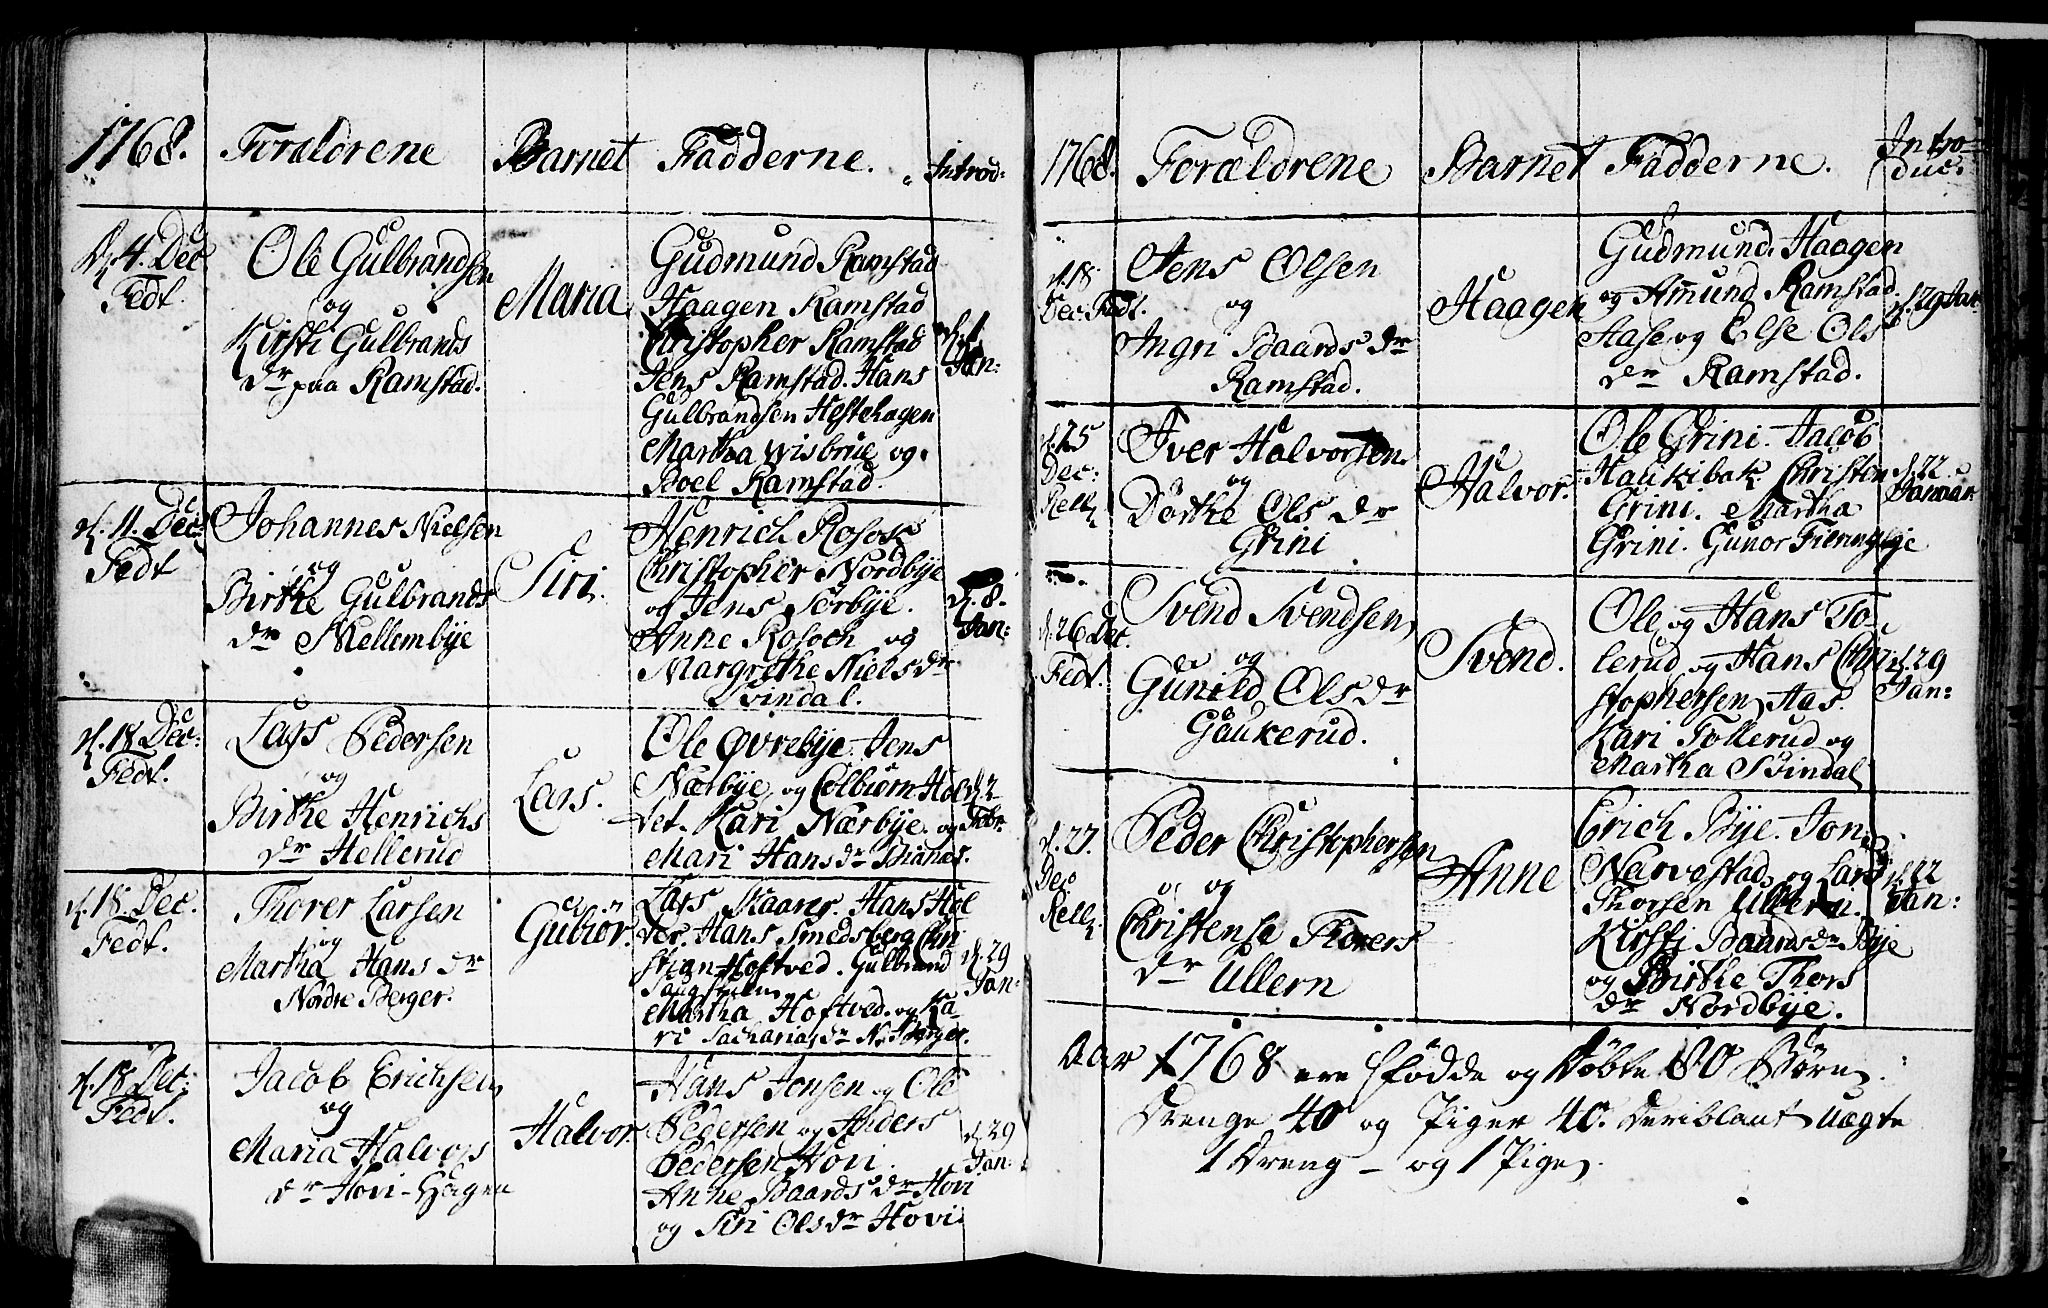 1768. Forældrene Barnet Fadderne. Introd:
d. 4. Dec
Fedt.
Ole Gulbrandsen
og
Kirsti Gulbrands
dr paa Ramstad.
Maria
Gudmund Ramstad
Haagen Ramstad
Christopher Ramstad
Jens Ramstad. Hans
Gulbrandsen Hestehagen
Martha Wisbrue og
Boel Ramstad.
d. 1
Jan:
d. 11. Dec:
Fedt
Johannes Nielsen
og
Birthe Gulbrands
dr Mellembye
Siri.
Henrich Rosok
Christopher Nordbye
og Jens Sørbye.
Anne Rosoch og
Margrethe Niels dr
Svindal.
d. 8.
Jan:
d. 18 Dec:
Fedt.
Lars Pedersen
og
Birthe Henrichs
dr Hellerud
Lars.
Ole Øvrebye. Jens
Nærbye og Colbiørn Hol
vet. Kari Nærbye og
Mari Hans dr Braner.
d. 2
Febr.
d. 18. Dec.
Fedt.
Thorer Larsen
og
Martha Hans dr
Nordre Berger.
Gubiør.
Lars Skaarer. Hans Hol
ver. Hans Smedsberg Chri
stian Hoftved. Gulbrand
Martha Hoftved og Ka-
ri Sacharias dr N. Berger.
d. 29
Jan:
d. 18 Dec:
Fedt.
Jacob Erichsen
og
Maria Halvors
dr Hovi-Hagen
Halvor.
Hans Jensen og Ole
Pedersen og Anders
Pedersen Hovi.
Anne Baards dr Hovi
og Siri Ols dr Hovi.
d. 29
Jan:
1768. Forældrene Barnet Fadderne. Intro
duc:
d. 18
Dec: Fedt.
Jens Olsen
og
Ingri Baards dr
Ramstad.
Haagen
Gudmund. Haagen
og Amund Ramstad
Aase og Else Ols
dr Ramstad.
d. 29 Jan:
d. 25
Dec:
Rell.
Iver Halvorsen
og
Dorthe Ols dr
Grini
Halvor.
Ole Grini. Jacob
Haukibak. Christen
Grini. Martha
Grini. Gunor Fierningbye
d. 22
Januar
d. 26 Dec.
Fedt.
Svend Svendsen
og
Gunild Ols dr
Gaukerud.
Svend.
Ole og Hans To
lerud og Hans Chri
stophersen Aas.
Kari Tollerud og
Martha Svindal
d. 29
Jan:
d. 27.
Dec
Rell.
Peder Christophersen
og
Christense Thorers
dr Ullern
Anne
Erich Bye. Jon
Narvestad og Lars
Thorsen Ullern.
Kirsti Baards dr Bye
og Birthe Thors
dr Nordbye.
d. 22
Jan:
Aar 1768 ere fødde og Døbte 80 Børn:
Drenge 40 og Piger 40. Deriblant uægte
1 Dreng - og 1 Pige.